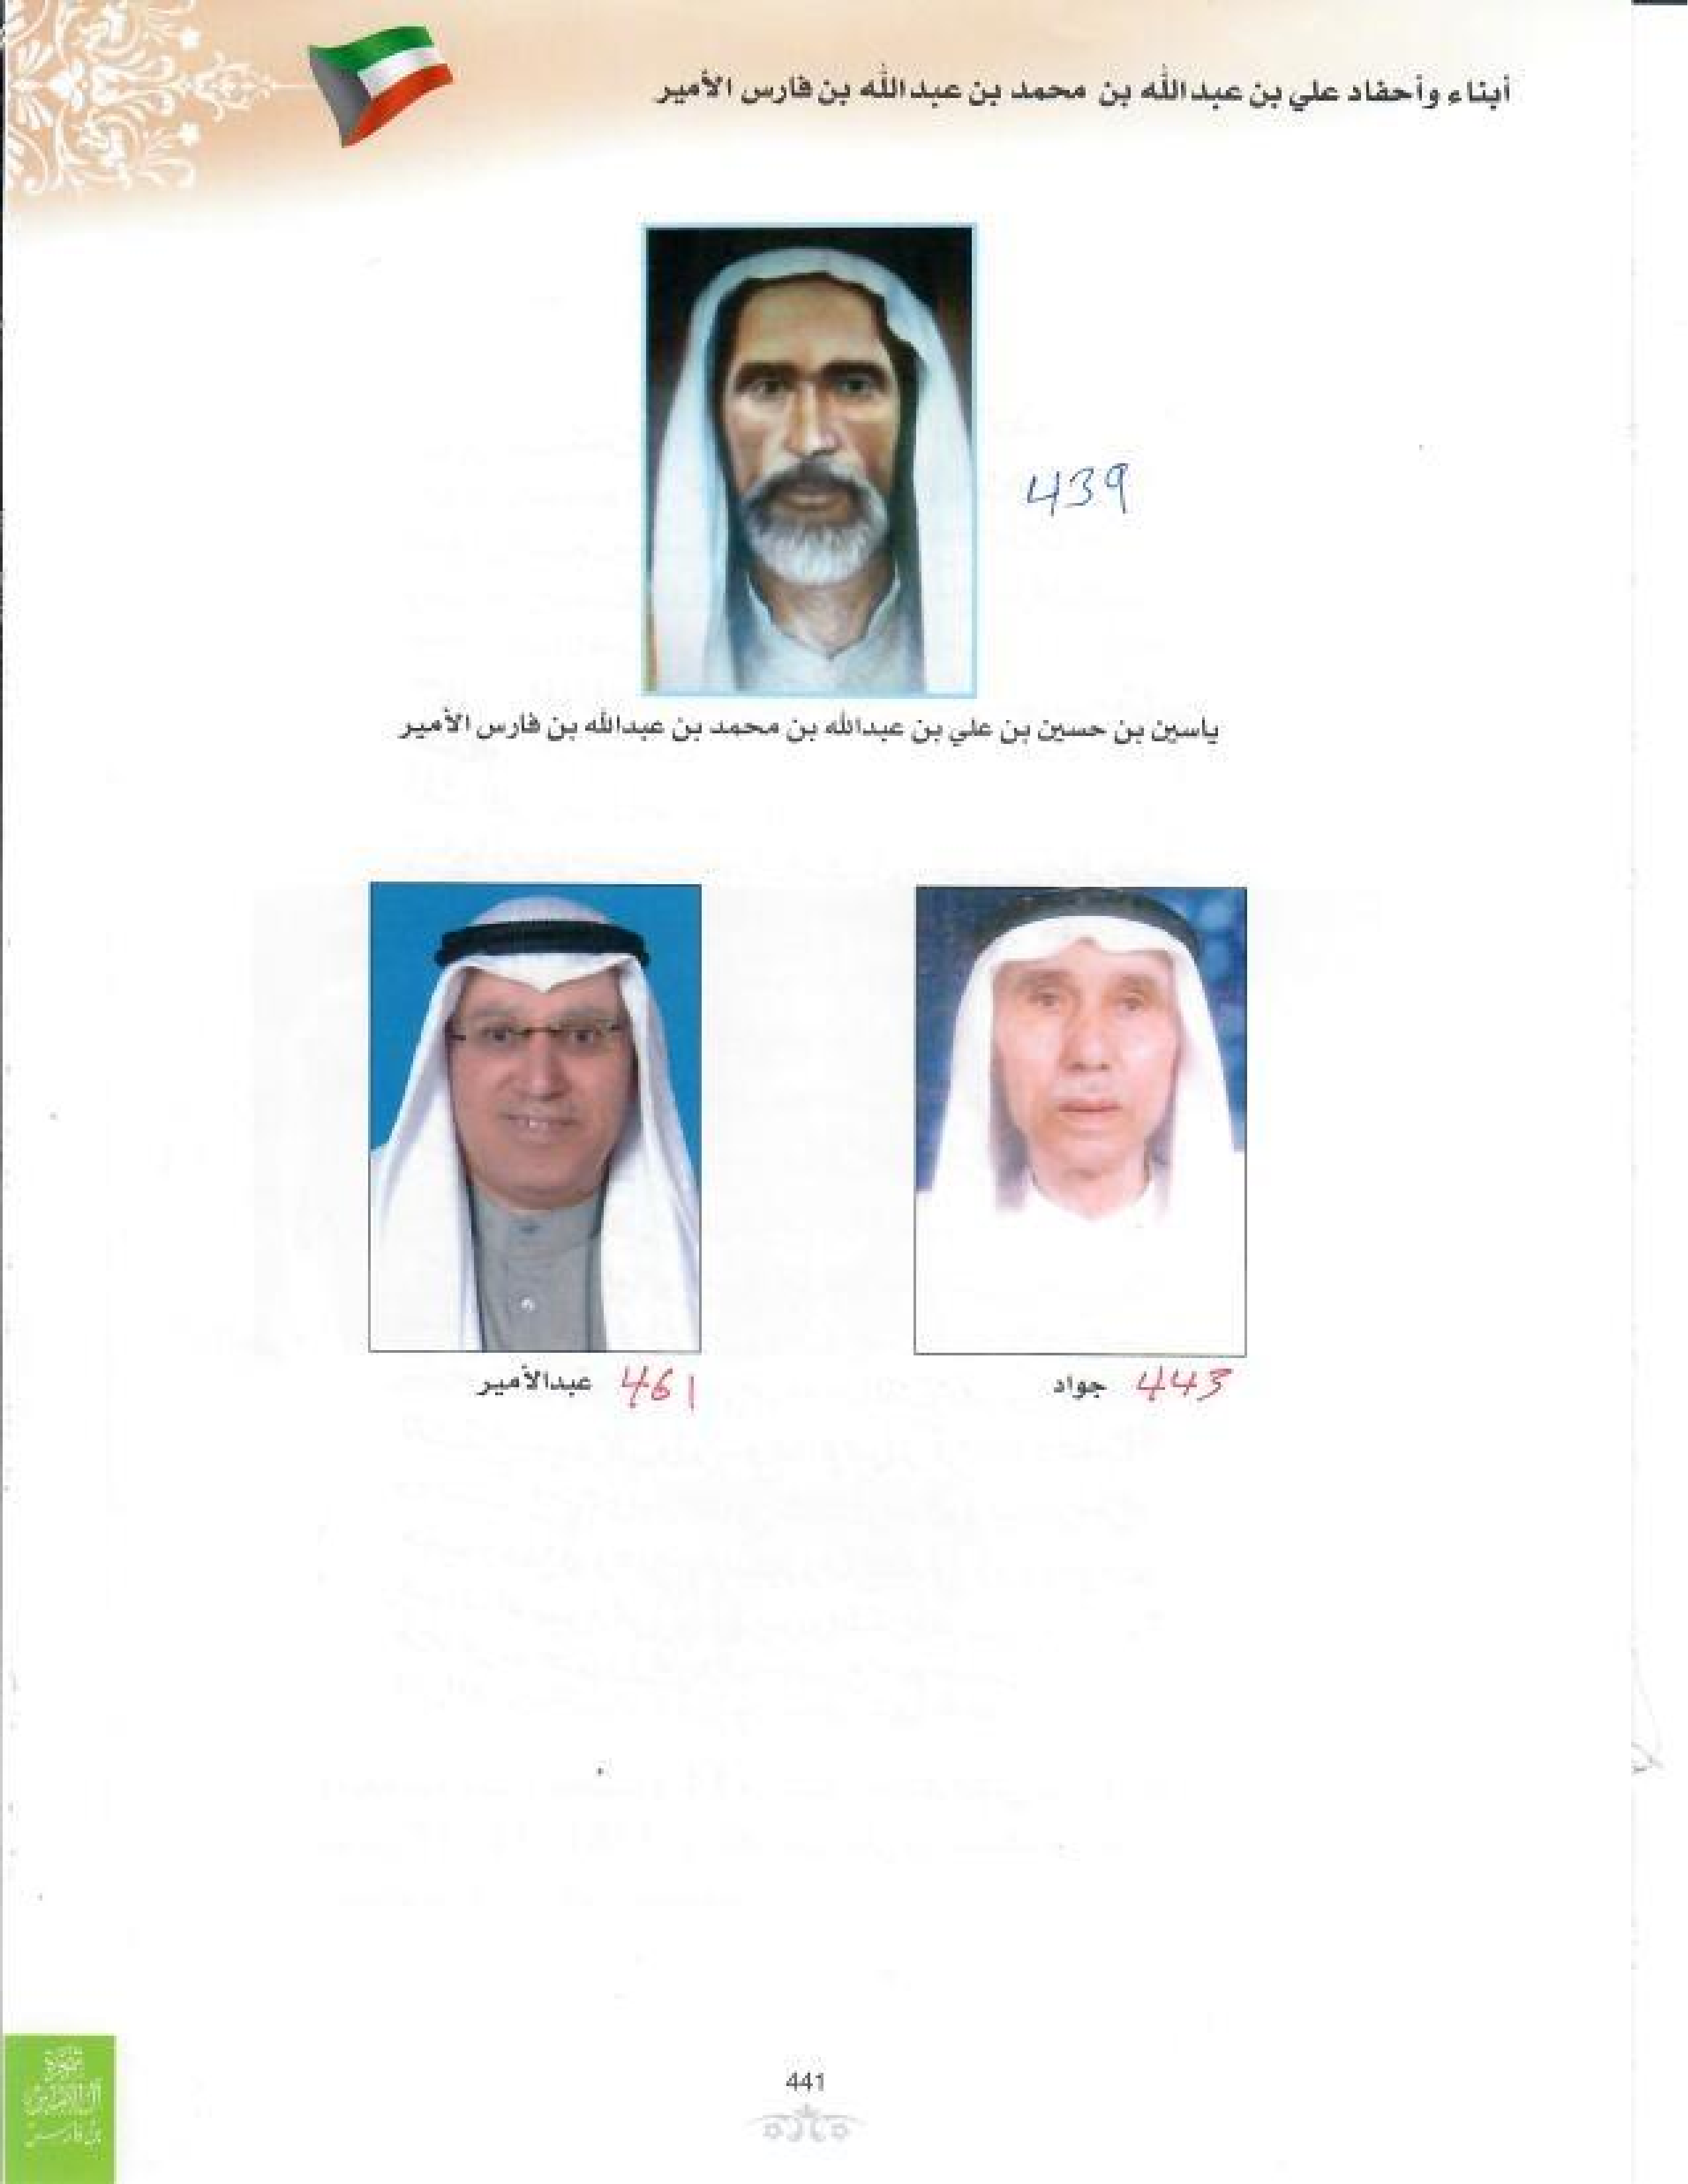 أبناء وأحفاد علي بن عبدالله بن محمد بن عبدالله بن فارس الأمير
439
ياسين بن حسين بن علي بن عبدالله بن محمد بن عبدالله بن فارس الأمير
443 جواد
461 عبدالأمير
441